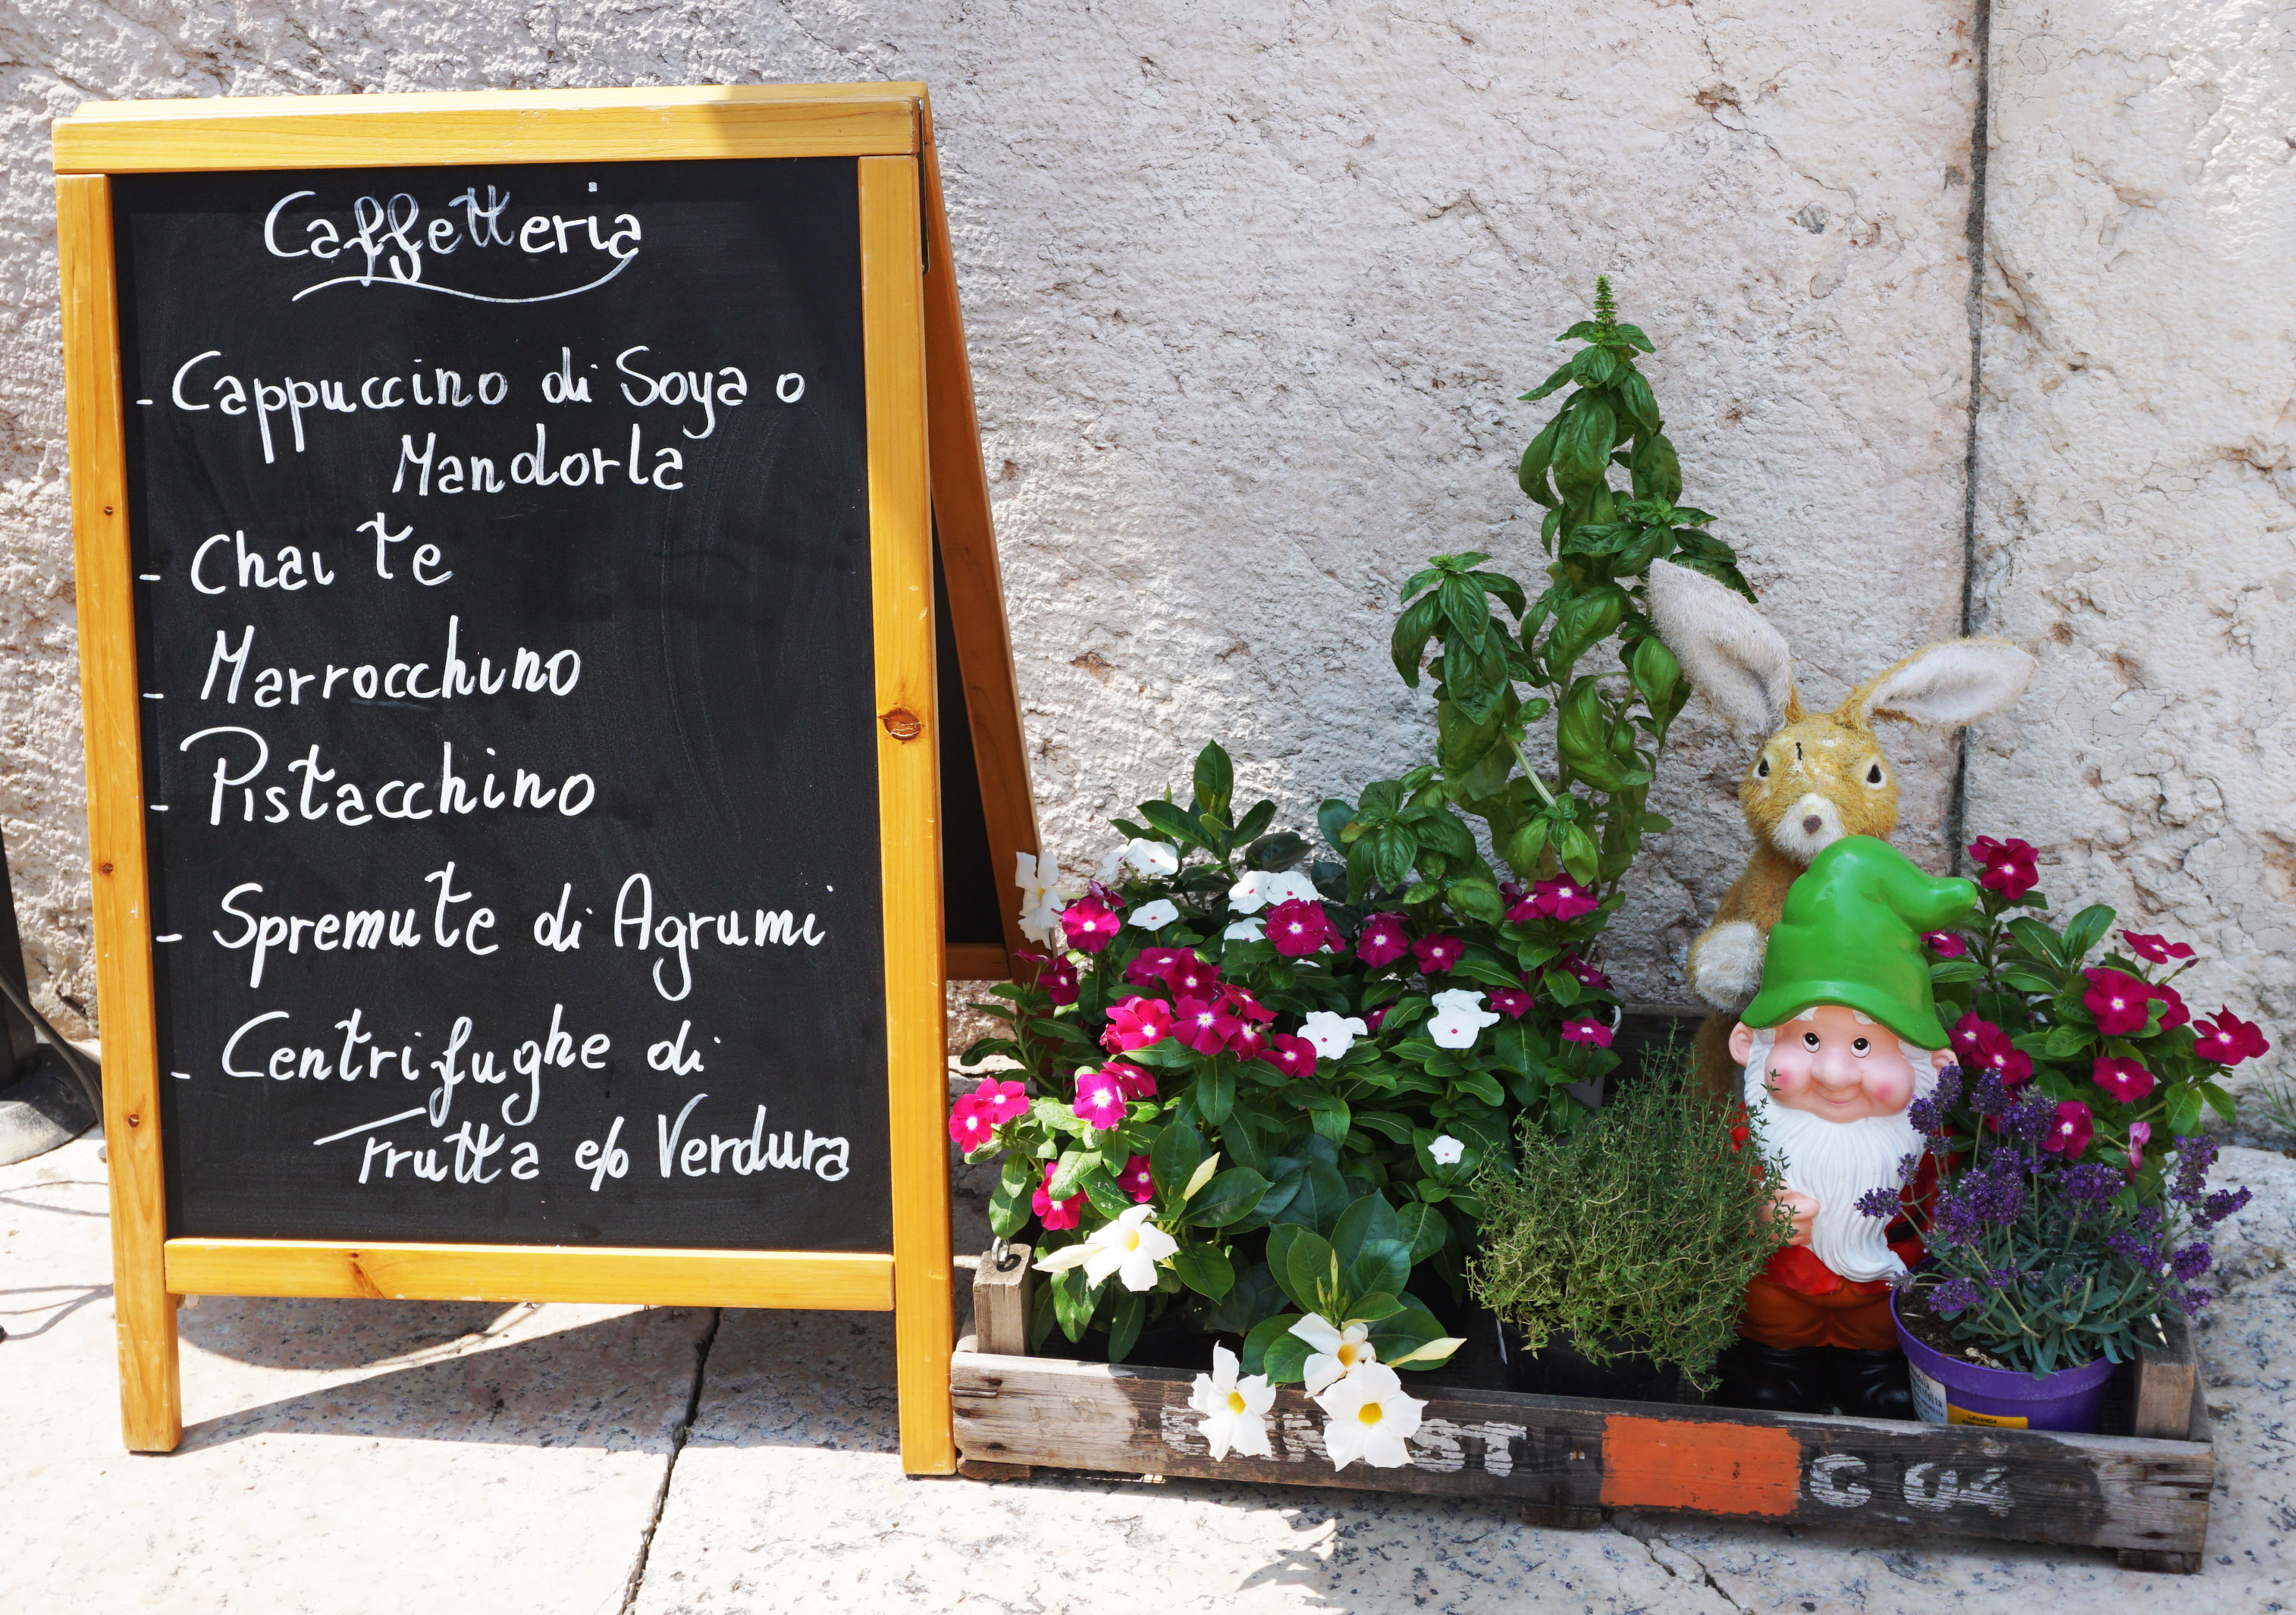 Caffetteria
- Cappuccino di Soya o
Mandorla
- Chai te
- Marrocchino
- Pistacchino
- Spremute di Agrumi
- Centrifughe di
Frutta e/o Verdura
C 04
LAVANDA